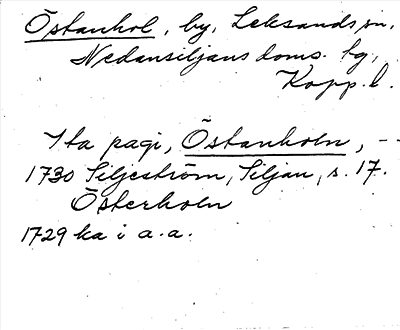 Östanhol, by, Leksands sn,
Nedansiljans doms. tg,
Kopp. l.
Ita pagi, Östanholn, --
1730 Siljeström, Siljan, s. 17.
Österholn
1729 ka i a.a.